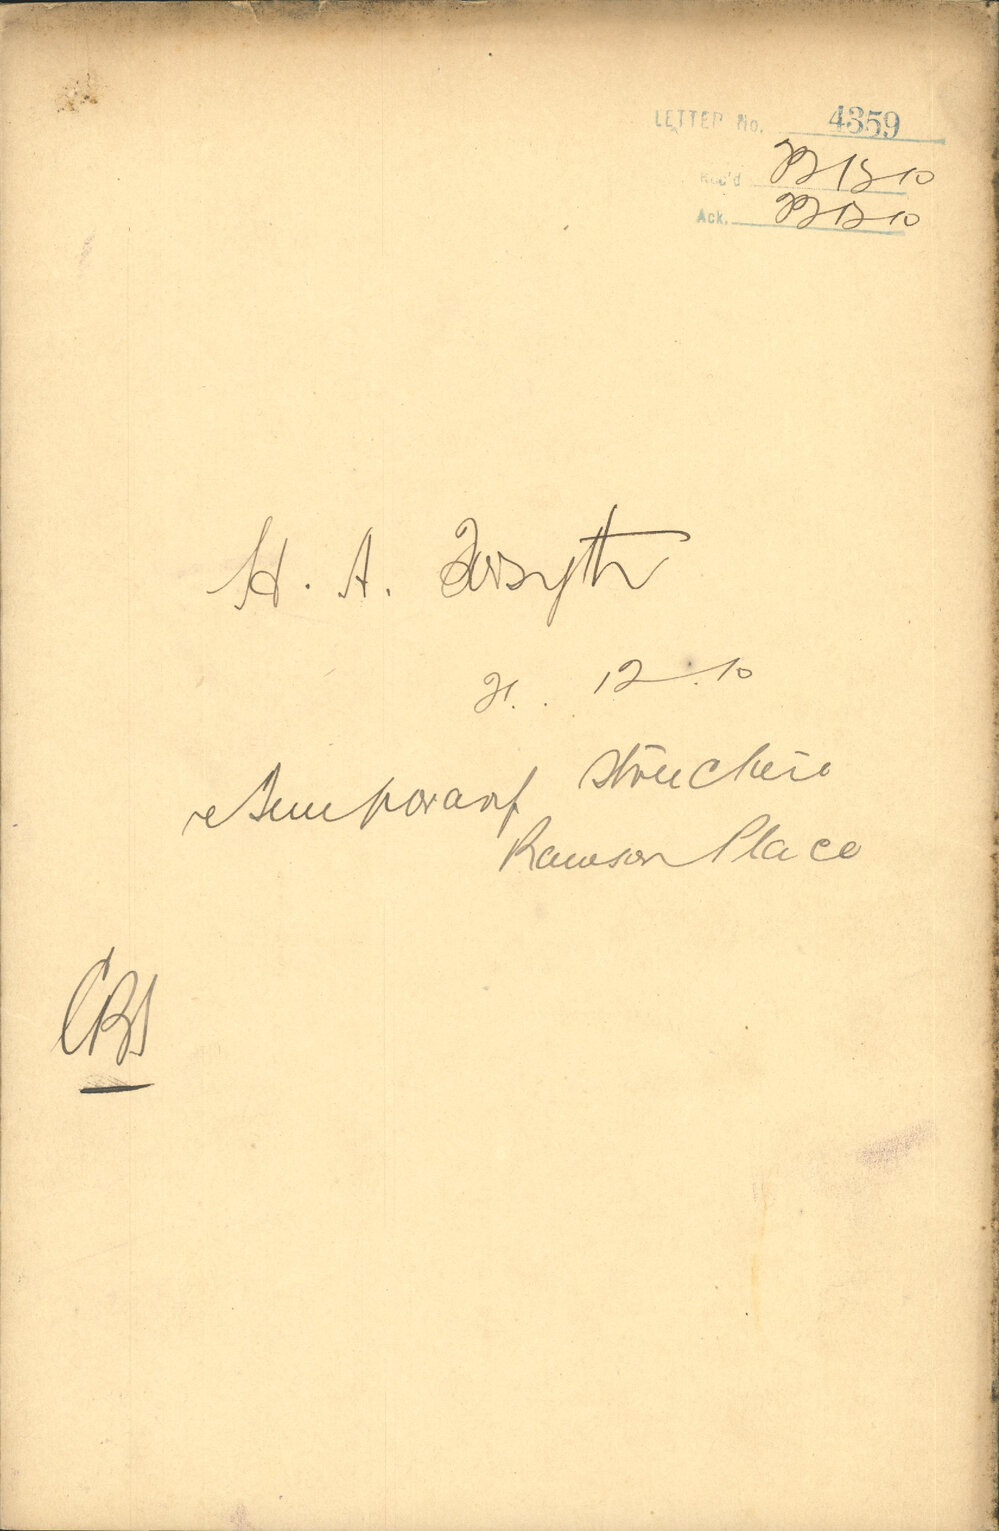 LETTER No. 4359
Rec'd 22/12/10
Ack. 22/12/10
H. A. Forsyth
21. 12. 10
Temporary Structure
Rawson Place
CBS